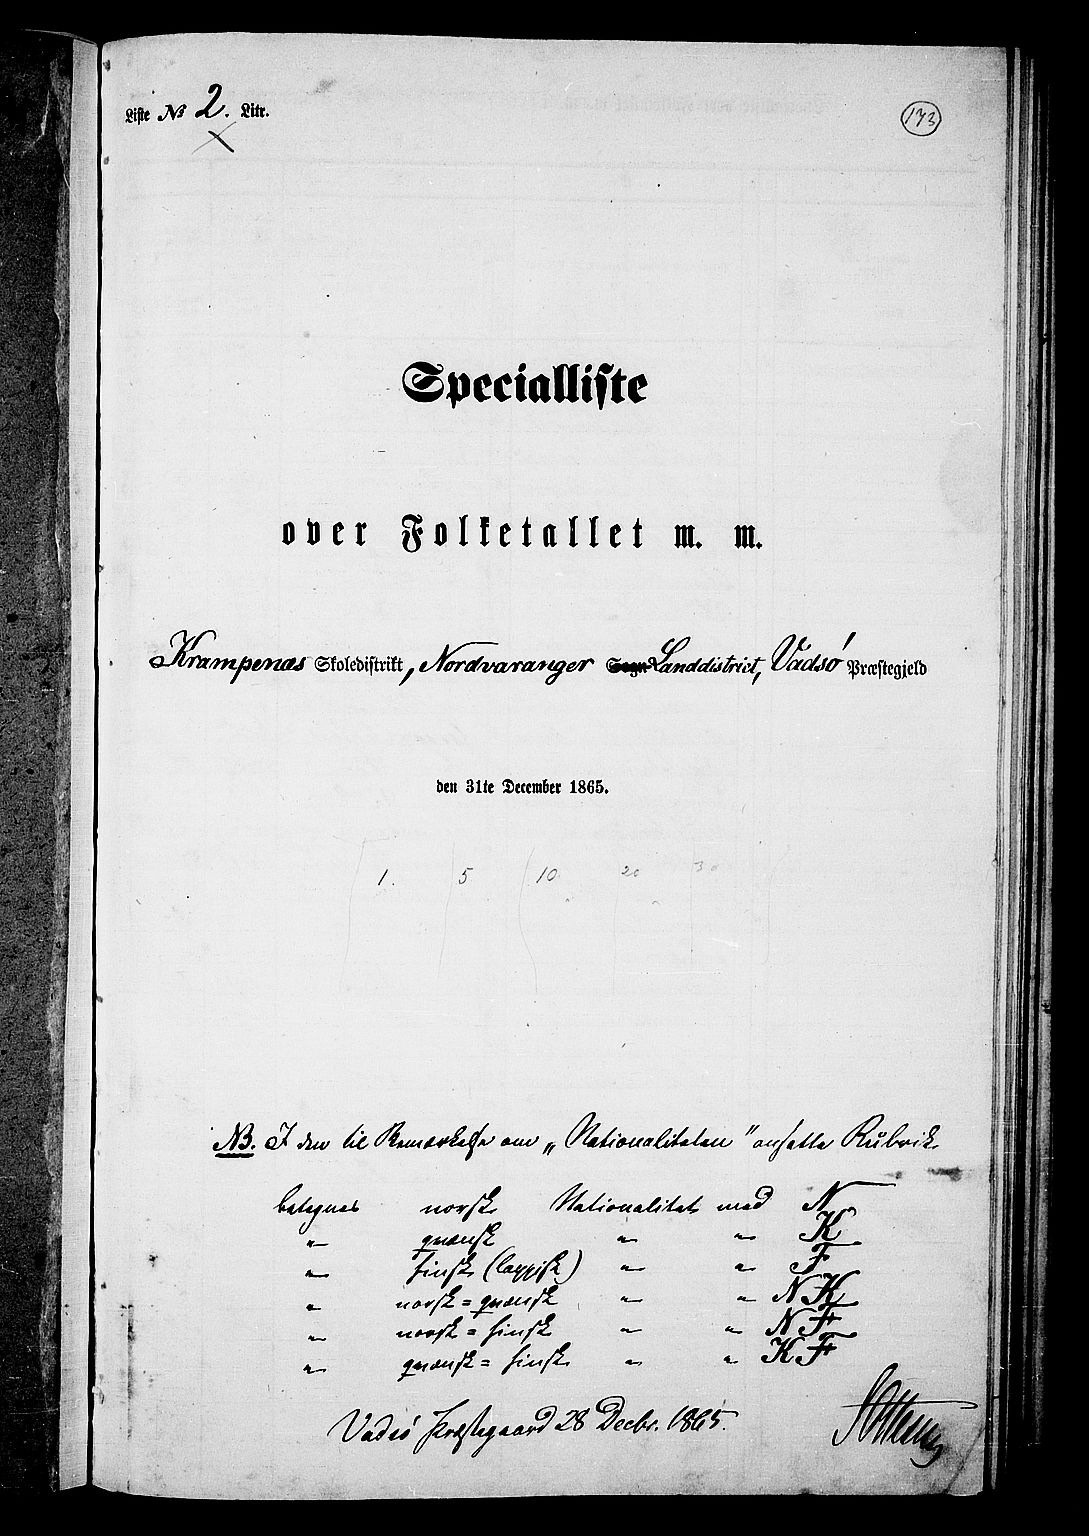 Liste No 2. Litr.
173
Specialliste
over Folketallet m. m.
Krampenæs Skoledistrikt, Nordvaranger Sogn Landdistrict, Vadsø Præstegjeld
den 31te December 1865.
1. 5 10 20 30
NB. I den til Bemærkelse om „Nationaliteten" ansatte Rubrik
betegnes norsk Nationalitet med N
〃 qvænsk 〃 〃 K
〃 finsk (lappisk) 〃 〃 F
〃 norsk=qvænsk 〃 〃 NK
〃 norsk=finsk 〃 〃 NF
〃 qvænsk=finsk 〃 〃 KF
Vadsø Præstegaard 28 Decbr. 1865.